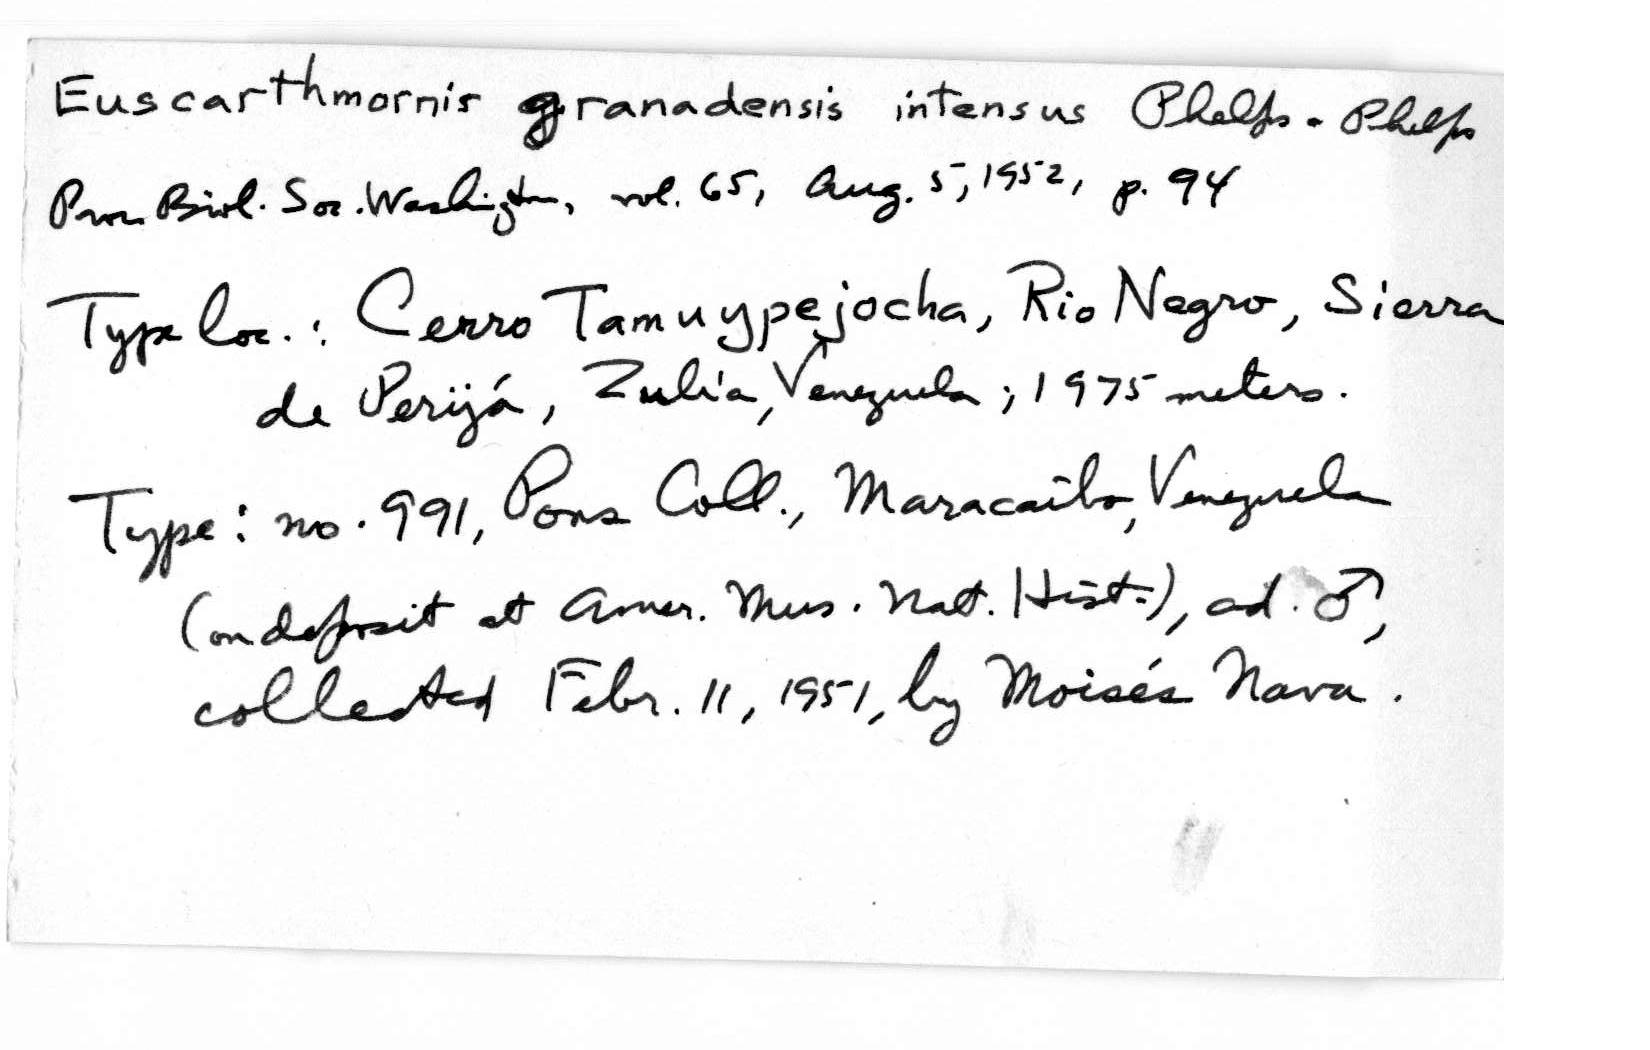 Euscarthmornis granadensis intensus Phelps - Phelps
Proc. Biol. Soc. Washington, vol. 65, Aug. 5, 1952, p. 94
Type loc.: Cerro Tamuypejocha, Rio Negro, Sierra
de Perijá, Zulia, Venezuela; 1975 meters.
Type: no. 991, Pons Coll., Maracaibo, Venezuela
(on deposit at Amer. Mus. Nat. Hist.), ad. ♂,
collected Febr. 11, 1951, by Moisés Nava.